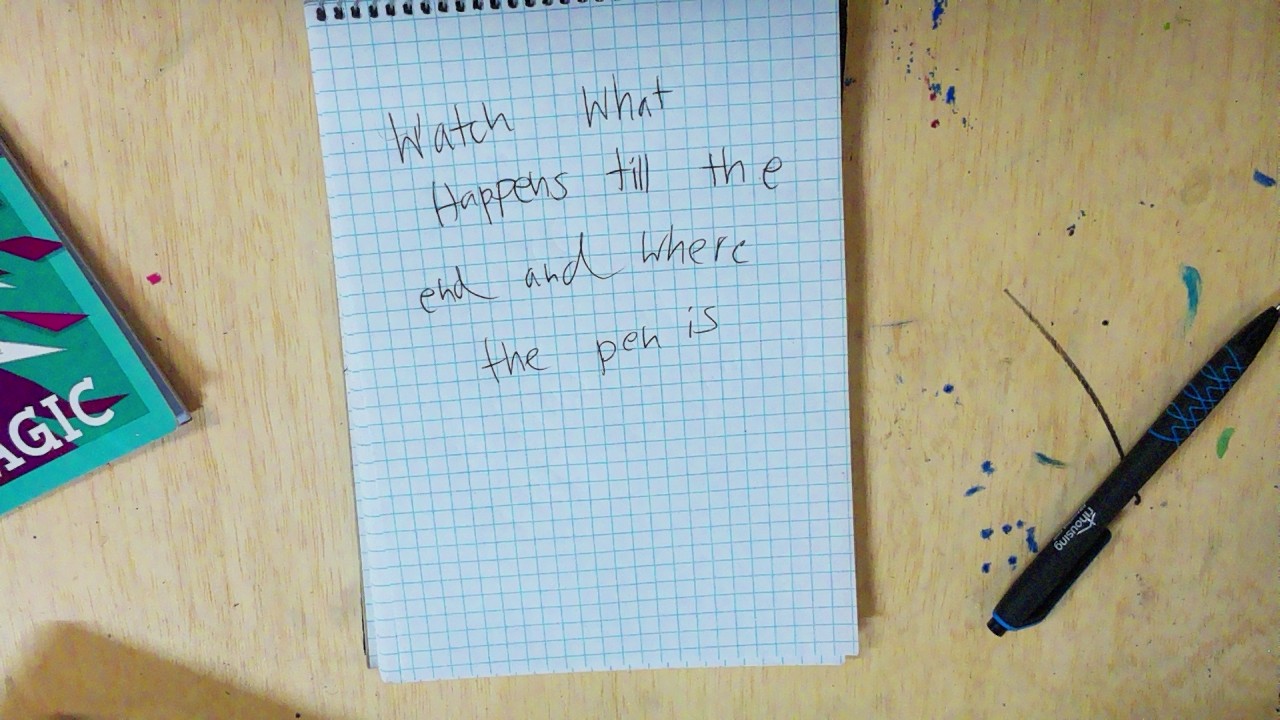 Watch What
Happens till the
end and where
the pen is
AGIC
rihousing